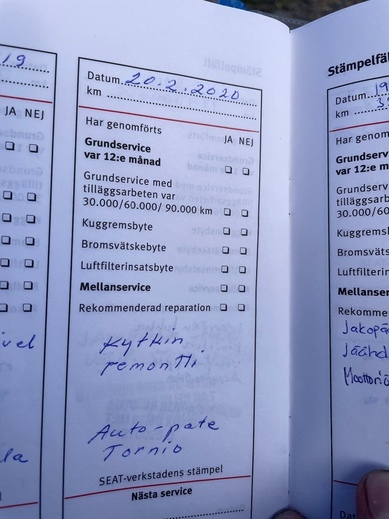 19
JA NEJ
vel
la
Stämpelfält
Datum 20.2.2020
km
Har genomförts JA NEJ
Grundservice
var 12:e månad
Grundservice med
tilläggsarbeten var
30.000/60.000/ 90.000 km
Kuggremsbyte
Bromsvätskebyte
Luftfilterinsatsbyte
Mellanservice
Rekommenderad reparation
Kytkin
remontti
Auto-pate
Tornio
SEAT-verkstadens stämpel
Nästa service
Stämpelfä
Datum 19
km
Har genomf
Grundserv
var 12:e m
Grundserv
tilläggsarb
30.000/6
Kuggremsb
Bromsväts
Luftfilterin
Mellanser
Rekomme
Jakopä
Jäähd
Moottoriö